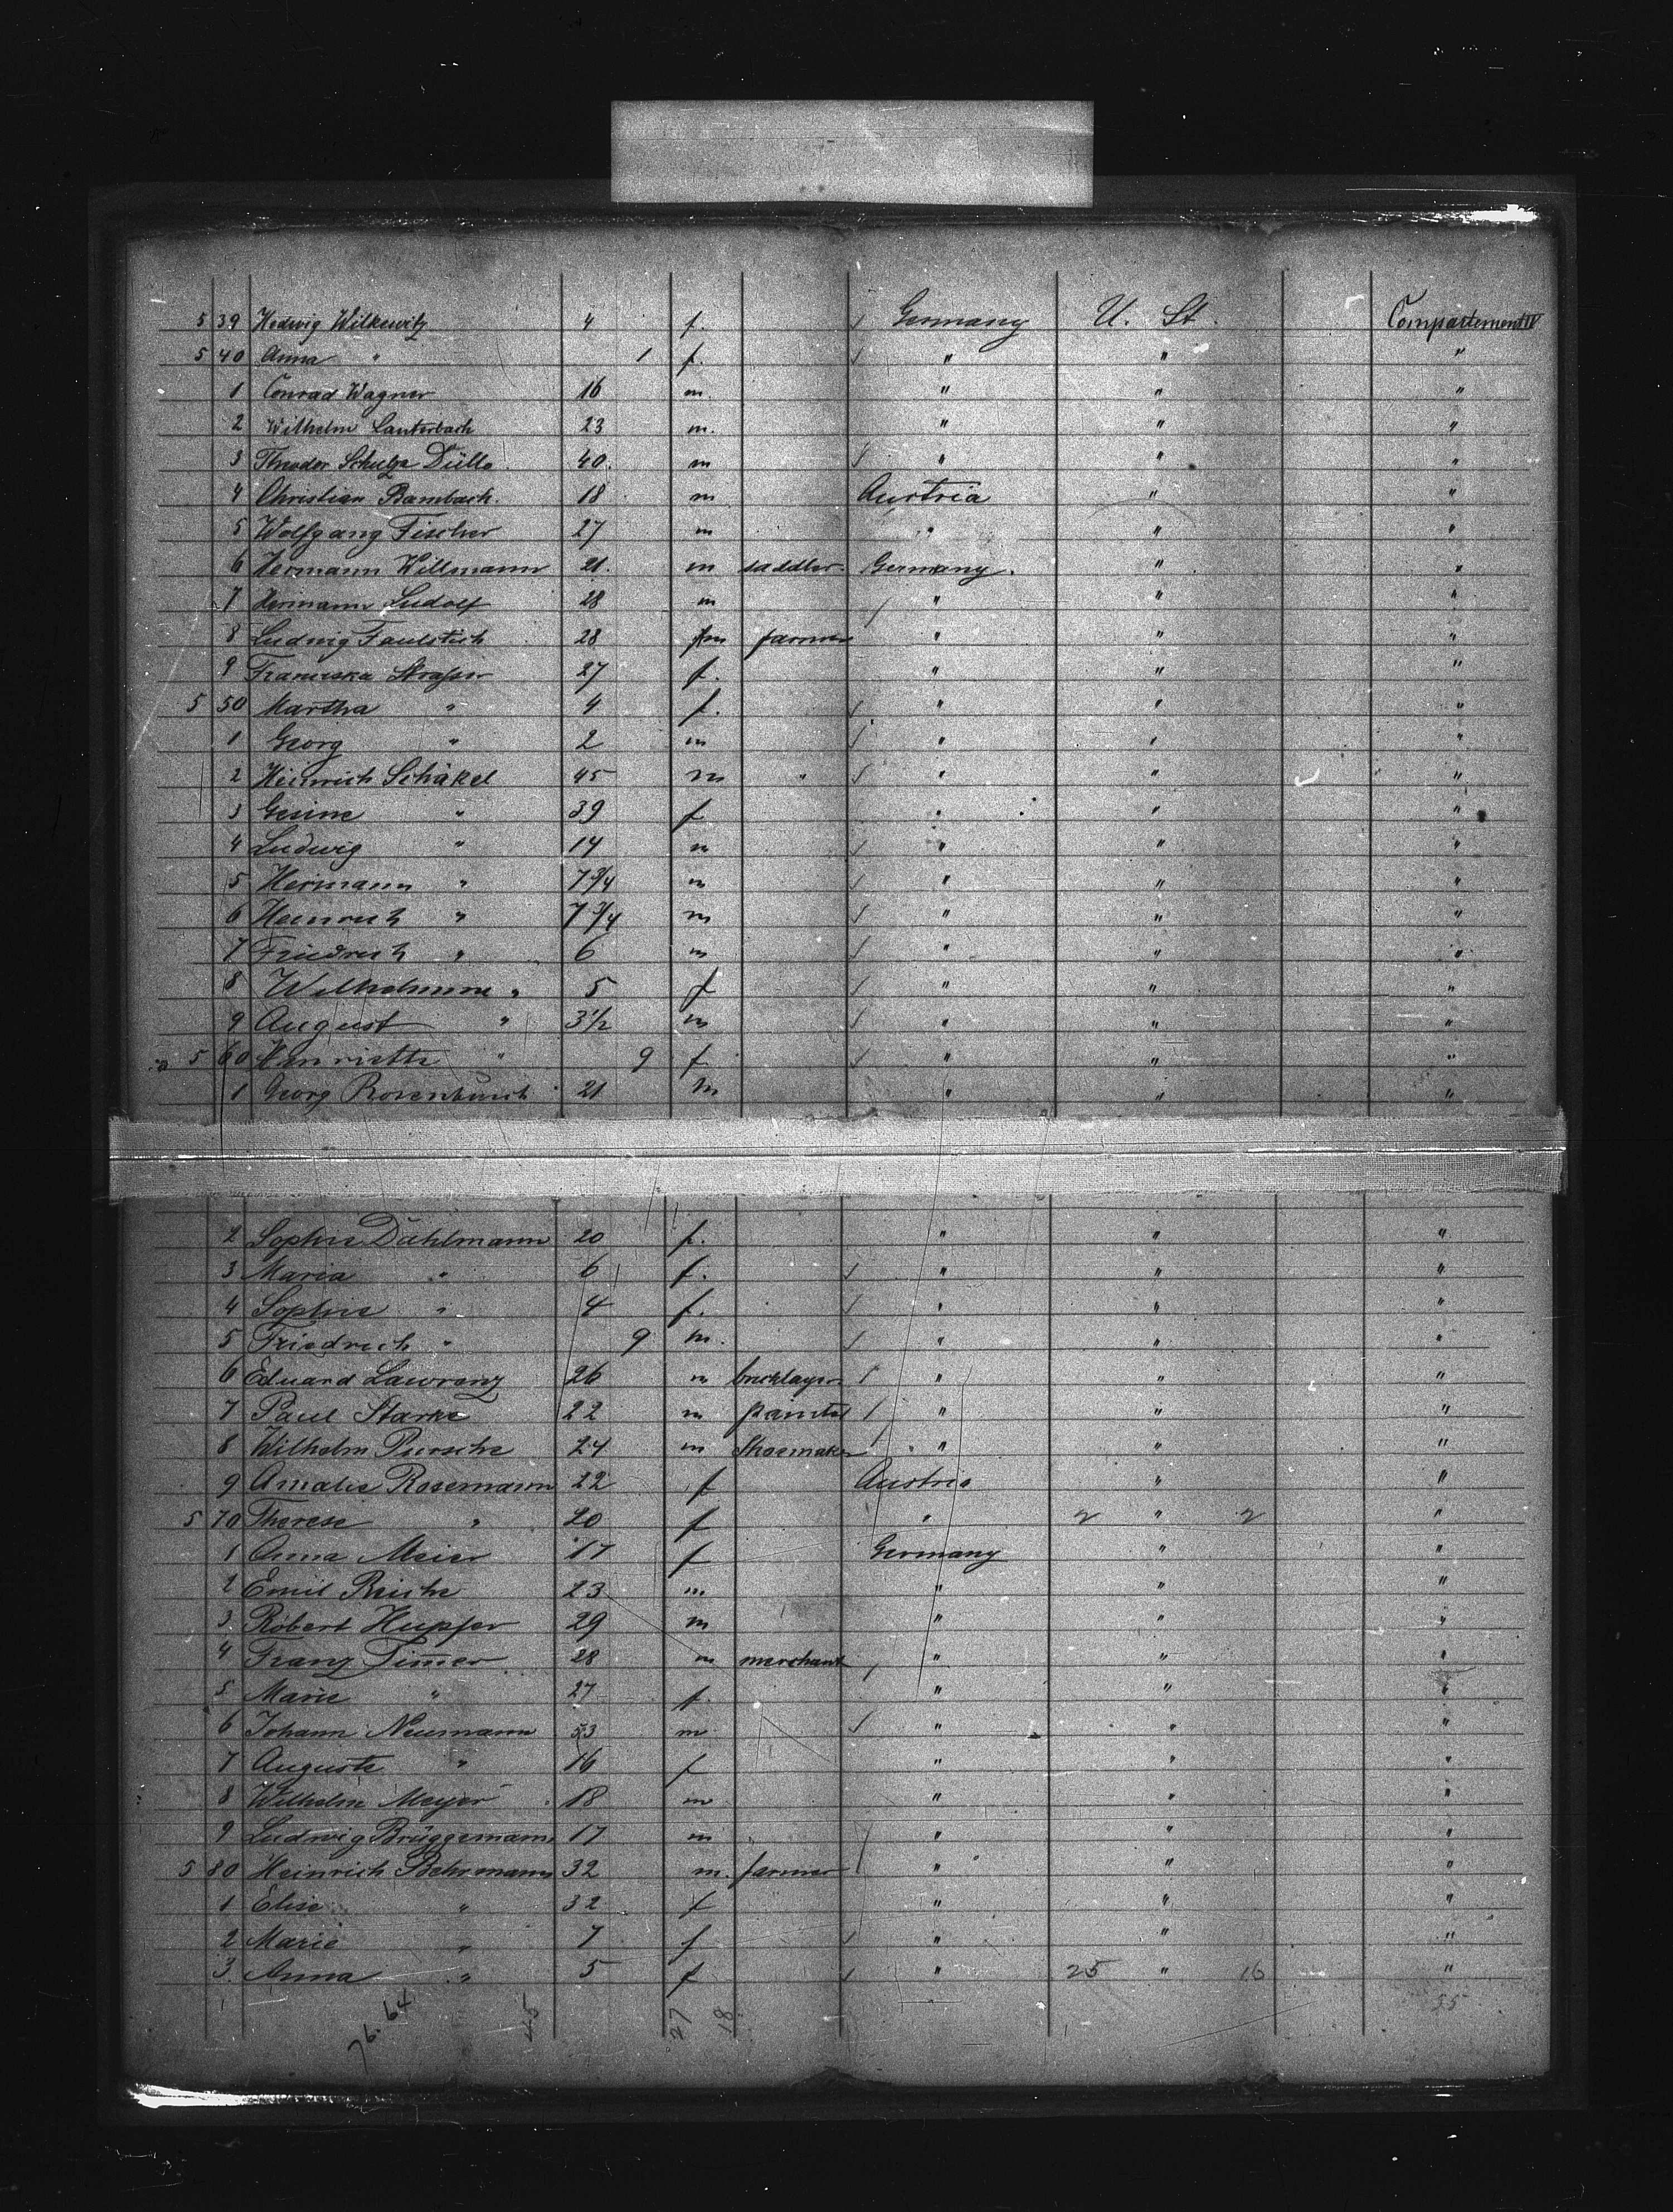 5 39 Hedwig Wilkewitz 4 f. Germany U. St. Compartement IV
5 40 Anna " 1 f. " " "
1 Conrad Wagner 16 m " " "
2 Wilhelm Lauterbach 23 m. " " "
3 Theodor Schulze Dülle 40. m " " "
4 Christian Bambach. 18 m Austria " "
5 Wolfgang Fischer 27 m " " "
6 Hermann Willmann 21. m saddler. Germany. " "
7 Hermann Ludolf 28 m " " "
8 Ludwig Faulstich 28 m farmer " " "
9 Franciska Strasser 27 f. " " "
5 50 Martha " 4 f. " " "
1 Georg " 2 m " " "
2 Heinrich Schäkel 45 m " " " "
3 Gesine " 39 f " " "
4 Ludwig " 14 m " " "
5 Hermann " 7 3/4 m " " "
6 Heinrich " 7 3/4 m " " "
7 Friedrich " 6 m " " "
8 Wilhelmine " 5 f " " "
9 August " 3 1/2 m " " "
5 60 Henriette " 9 f " " "
1 Georg Rosenbusch 21 m " " "
2 Sophie Dahlmann 20 f. " " "
3 Maria " 6 f. " " "
4 Sophie " 4 f. " " "
5 Friedrich " 9 m. " " "
6 Eduard Lawrenz 26 m bricklayer " " "
7 Paul Starke 22 m painter " " "
8 Wilhelm 24 m Shoemaker " " "
9 Amalie Rosemann 22 f Austria " "
5 70 Therese " 20 f " 2 " 2 "
1 Anna Meier 17 f Germany " "
2 Emil Reiche 23 m " " "
3 Robert Hupfer 29 m " " "
4 Franz Simer 28 m merchant " " "
5 Marie " 27 f. " " "
6 Johann Neumann 53 m " " "
7 Auguste " 16 f " " "
8 Wilhelm Meyer 18 m " " "
9 Ludwig Brüggemann 17 m " " " "
5 80 Heinrich Behrmann 32 m. farmer " " "
1 Elise " 32 f " " "
2 Marie " 7 f " " "
3. Anna " 5 f " 25 " 16 "
76. 64 45 27 18 55